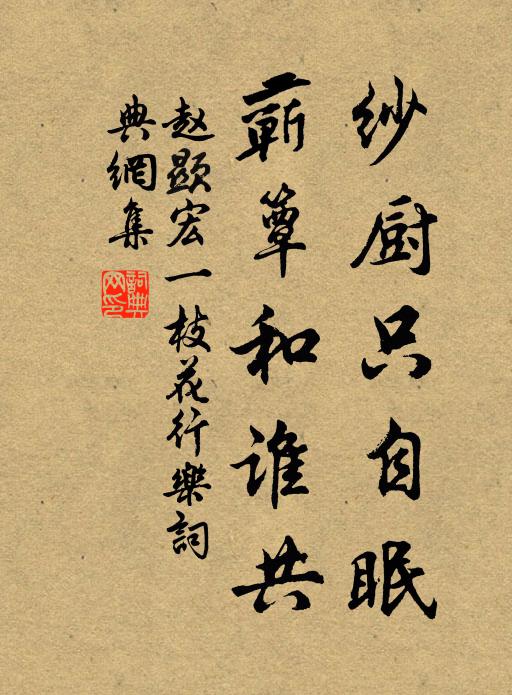 纱厨只自眠
蕲簟和谁共
赵显宏一枝花行樂詞
典網集
詞典网印